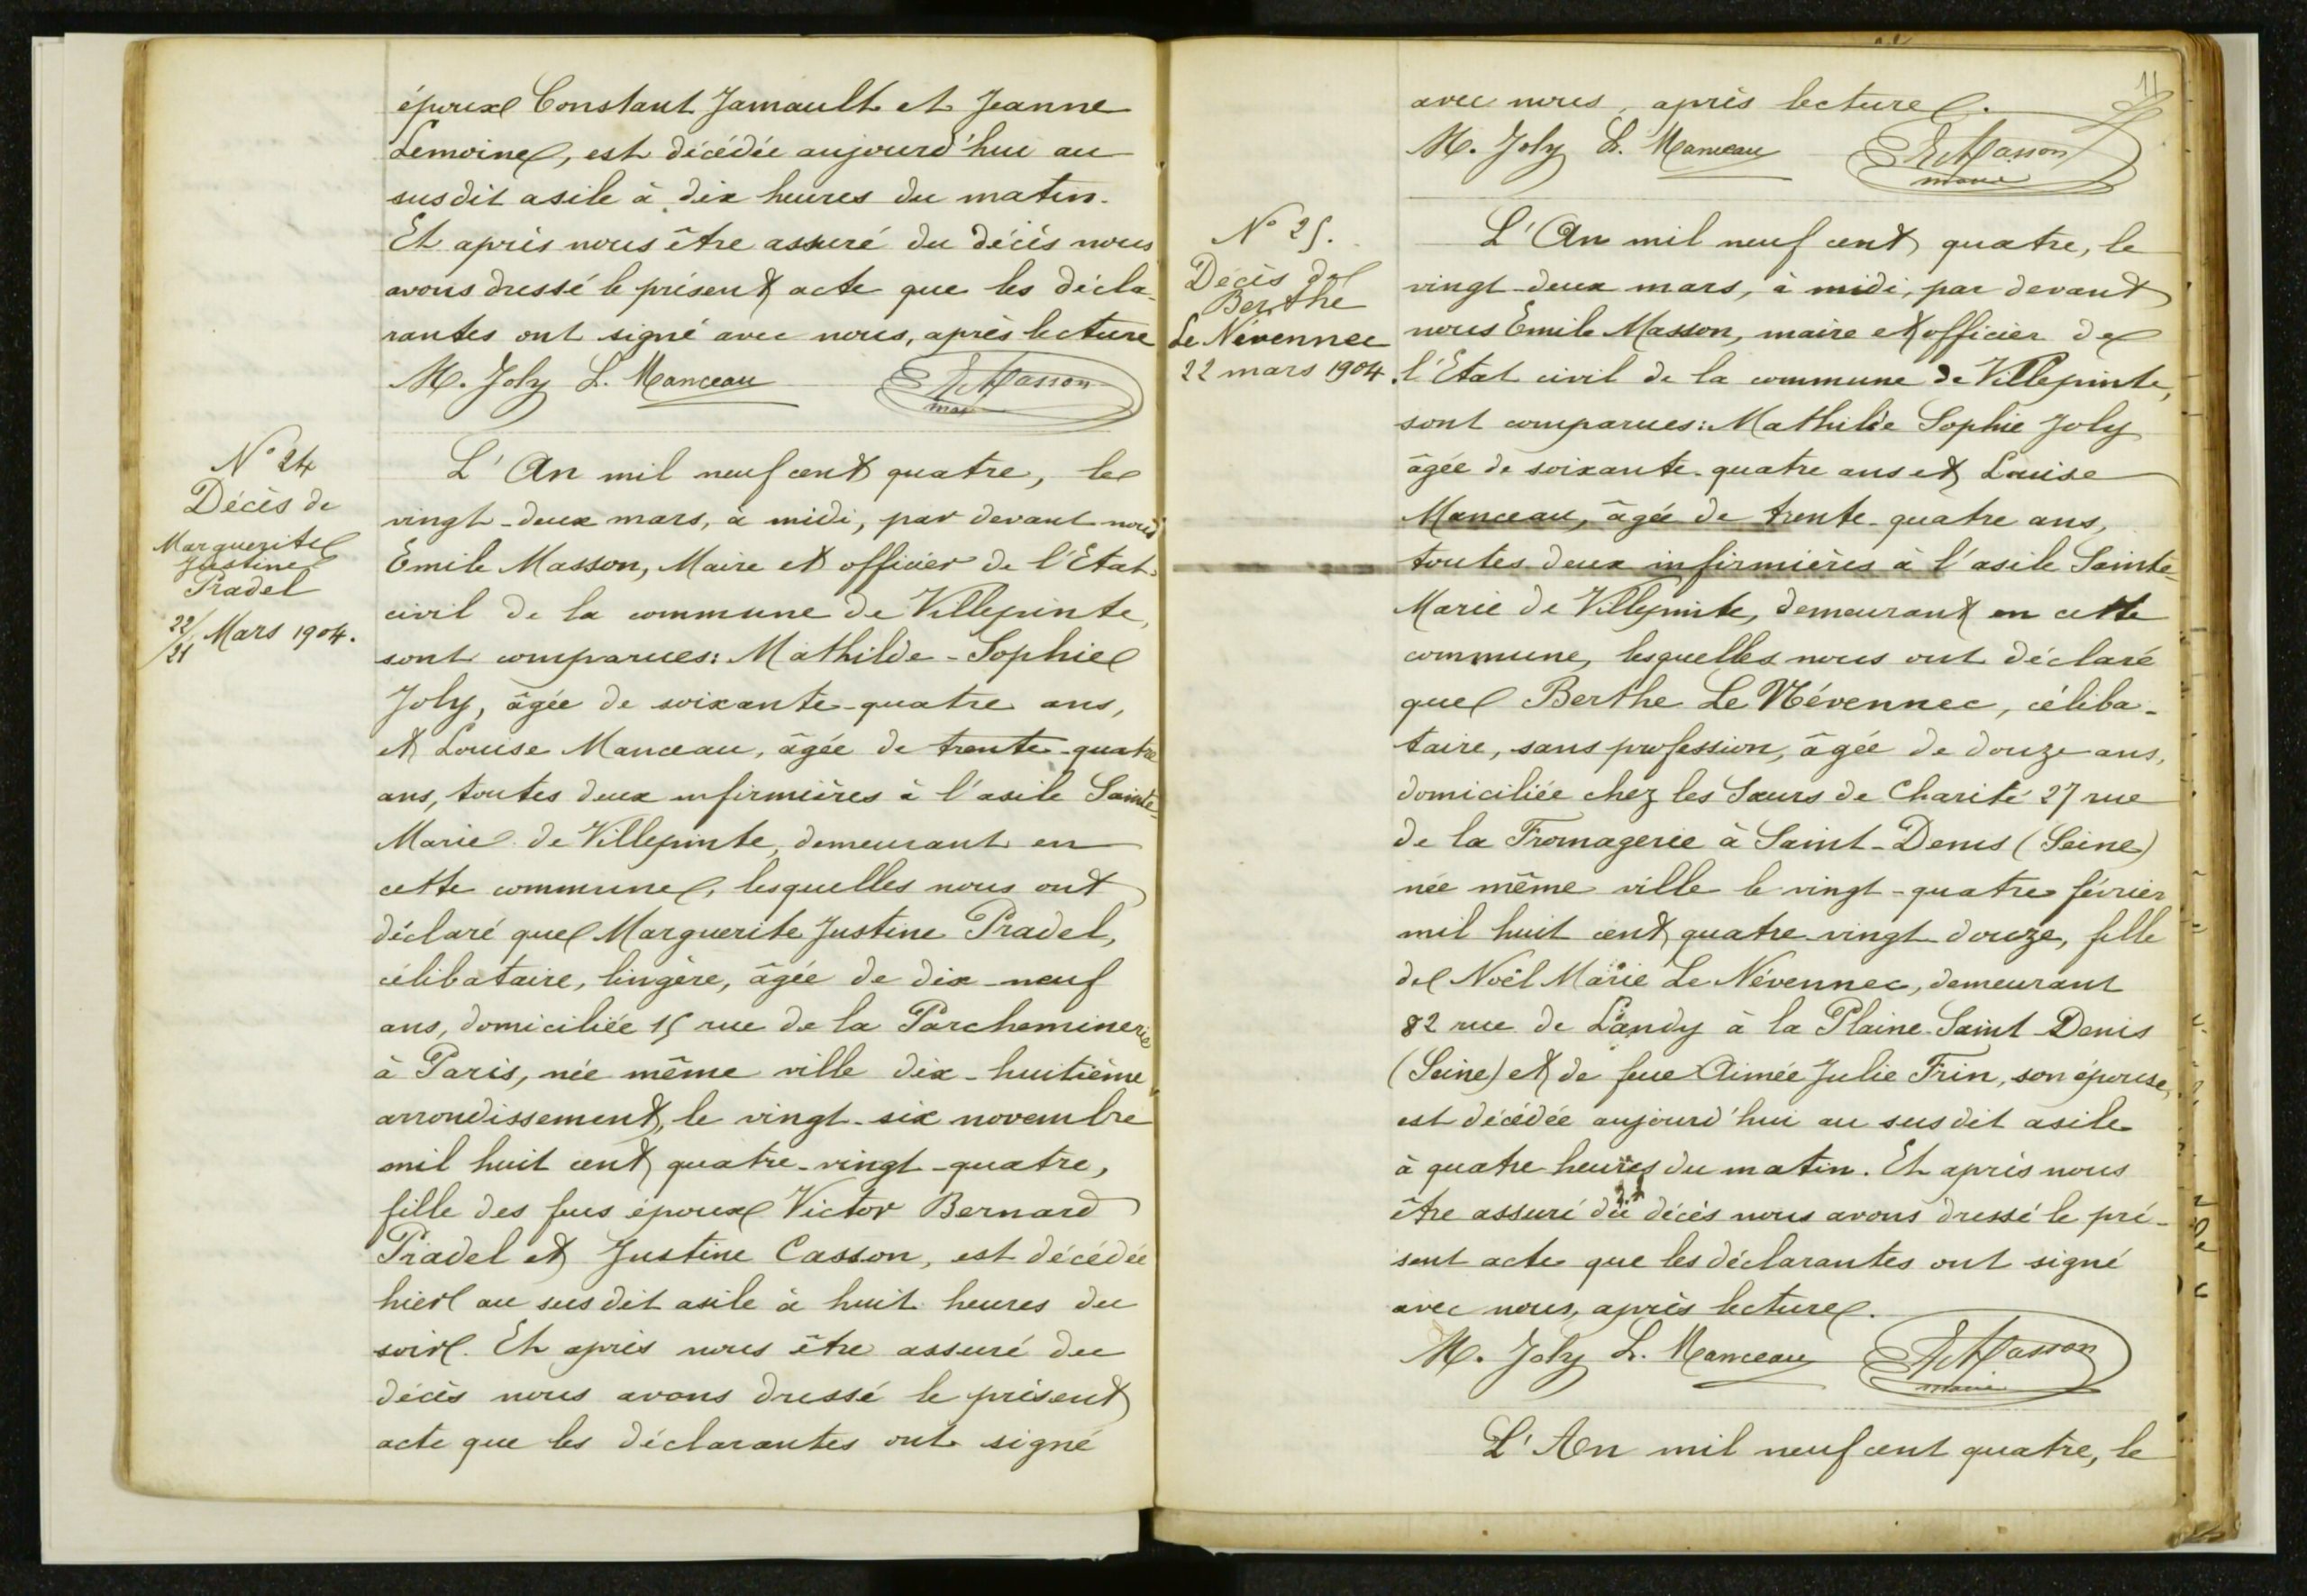 époux Constant Jamault et Jeanne
Lemoine, est décédée aujourd'hui au
susdit asile à dix heures du matin.
Et après nous être assuré du décès nous
avons dressé le présent acte que les décla-
rantes ont signé avec nous, après lecture
M. Joly L. Manceau E Masson
maire
N° 24
Décès de
Marguerite
Justine
Pradel
22/21 Mars 1904.
L'An mil neuf cent quatre, le
vingt-deux mars, à midi, par devant nous
Emile Masson, Maire et officier de l'Etat-
civil de la commune de Villepinte,
sont comparues: Mathilde-Sophie
Joly, âgée de soixante-quatre ans,
et Louise Manceau, âgée de trente-quatre
ans, toutes deux infirmières à l'asile Sainte-
Marie de Villepinte, demeurant en
cette commune, lesquelles nous ont
déclaré que Marguerite Justine Pradel,
célibataire, lingère, âgée de dix-neuf
ans, domiciliée 15 rue de la Parcheminerie
à Paris, née même ville dix-huitième
arrondissement, le vingt-six novembre
mil huit cent quatre-vingt-quatre,
fille des feus époux Victor Bernard
Pradel et Justine Casson, est décédée
hier au susdit asile à huit heures du
soir. Et après nous être assuré du
décès nous avons dressé le présent
acte que les déclarantes ont signé
11
avec nous, après lecture.
M. Joly L. Manceau E Masson
maire
N° 25.
Décès de
Berthe
Le Névennec
22 mars 1904.
L'An mil neuf cent quatre, le
vingt-deux mars, à midi, par devant
nous Emile Masson, maire et officier de
l'Etat civil de la commune de Villepinte,
sont comparues: Mathilde Sophie Joly
âgée de soixante-quatre ans et Louise
Manceau, âgée de trente-quatre ans,
toutes deux infirmières à l'asile Sainte-
Marie de Villepinte, demeurant en cette
commune, lesquelles nous ont déclaré
que Berthe Le Névennec, céliba-
taire, sans profession, âgée de douze ans,
domiciliée chez les Sœurs de Charité 27 rue
de la Fromagerie à Saint-Denis (Seine)
née même ville le vingt-quatre février
mil huit cent quatre-vingt douze, fille
de Noël Marie Le Névennec, demeurant
82 rue de Landy à la Plaine-Saint-Denis
(Seine) et de feue Aimée Julie Frin, son épouse,
est décédée aujourd'hui au susdit asile
à quatre heures du matin. Et après nous
être assuré du décès nous avons dressé le pré-
sent acte que les déclarantes ont signé
avec nous, après lecture.
M. Joly L. Manceau E Masson
maire
L'An mil neuf cent quatre, le